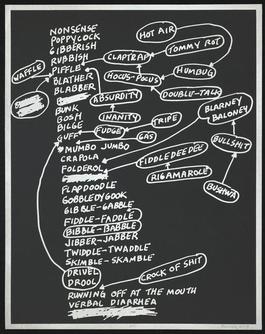 NONSENSE
POPPYCOCK
GIBBERISH
RUBBISH
PIFFLE
BLATHER
BLABBER
BUNK
BOSH
BILGE
GUFF
MUMBO JUMBO
CRAPOLA
FOLDEROL
FLAPDOODLE
GOBBLEDYGOOK
GIBBLE-GABBLE
FIDDLE-FADDLE
BIBBLE-BABBLE
JIBBER-JABBER
TWIDDLE-TWADDLE
SKIMBLE-SKAMBLE
DRIVEL
DROOL
RUNNING OFF AT THE MOUTH
VERBAL DIARRHEA
WAFFLE
HOT AIR
TOMMY ROT
CLAPTRAP
HUMBUG
HOCUS-POCUS
DOUBLE-TALK
ABSURDITY
INANITY
TRIPE
FUDGE
GAS
BLARNEY
BALONEY
BULLSHIT
FIDDLEDEEDEE
RIGAMAROLE
BUSHWA
CROCK OF SHIT